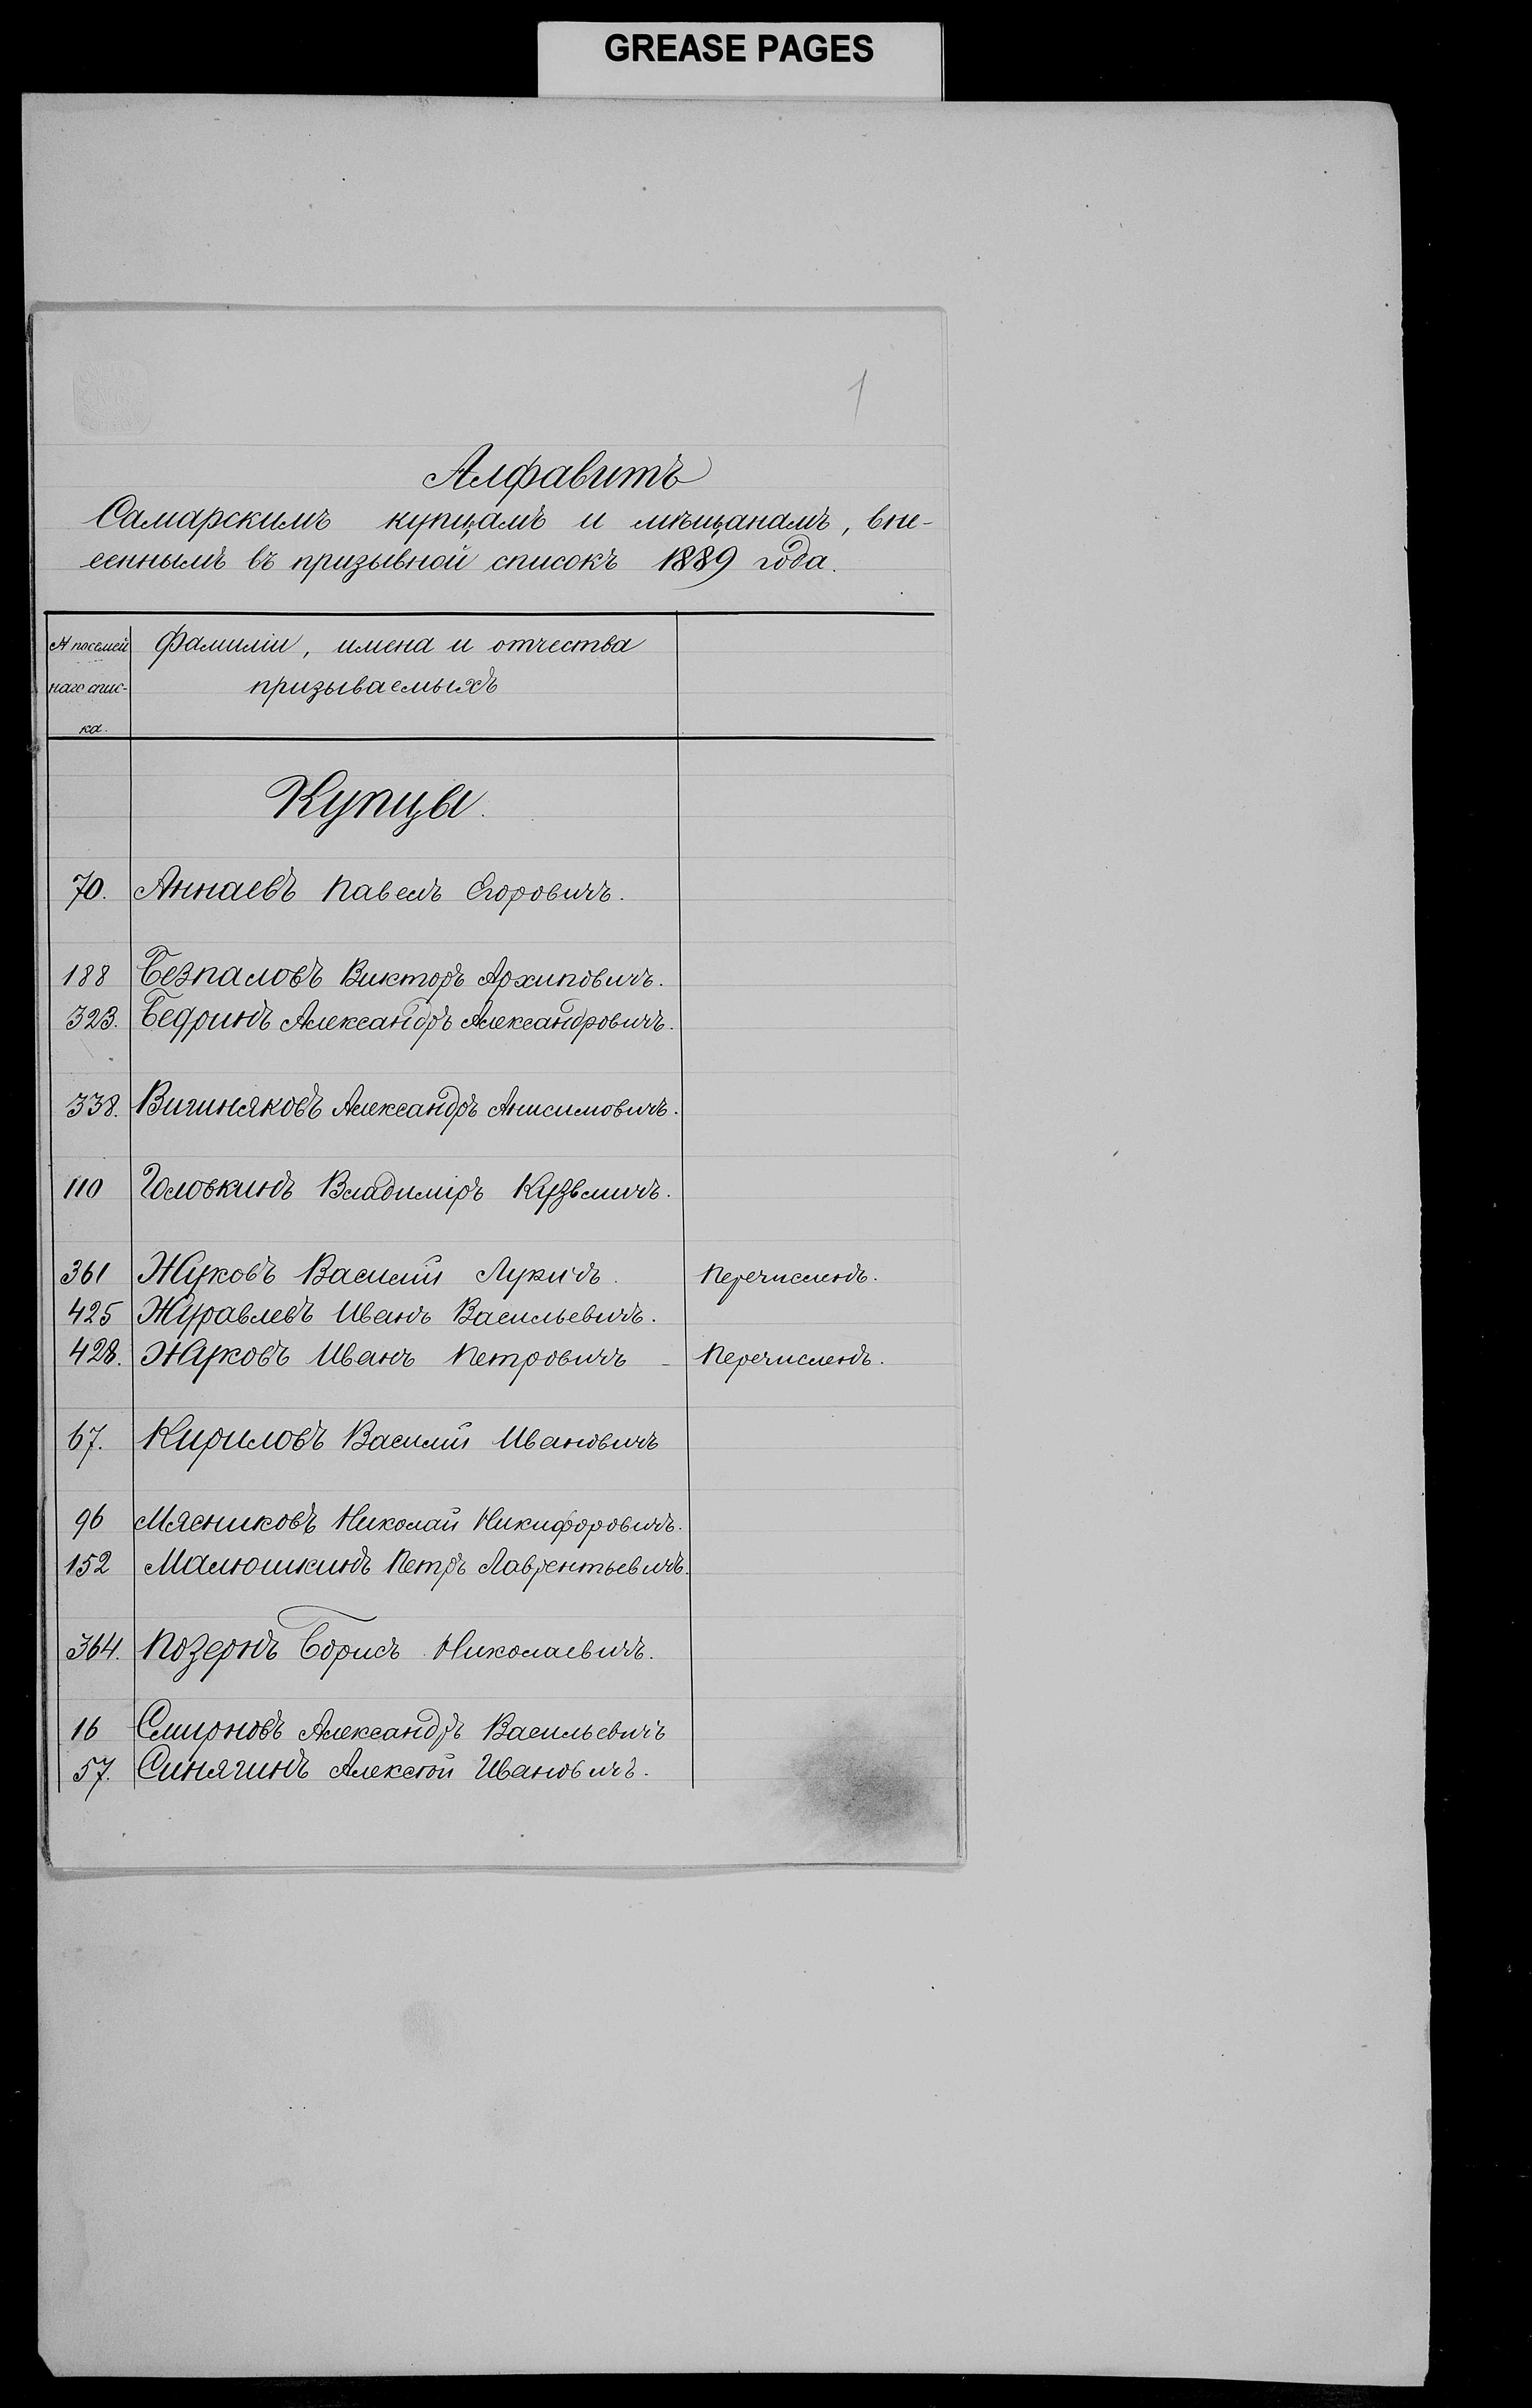 GREASE PAGES
1
Алфавитъ
Самарскимъ купцамъ и мѣщанамъ, вне-
сеннымъ въ призывной списокъ 1889 года.
№ посемей фамиліи, имена и отчества
наго спис- призываемыхъ
ка.
Купцы.
70. Аннаевъ Павелъ Егоровичъ.
188 Безпаловъ Викторъ Архиповичъ.
323. Бедринъ Александръ Александровичъ.
338. Вигиняковъ Александръ Анисимовичъ.
110 Головкинъ Владиміръ Кузьмичъ.
361 Жуковъ Василій Лукичъ. Перечисленъ.
425 Журавлевъ Иванъ Васильевичъ.
428. Жуковъ Иванъ Петровичъ - Перечисленъ.
67. Кириловъ Василій Ивановичъ
96 Мясниковъ Николай Никифоровичъ.
152 Малюшкинъ Петръ Лаврентьевичъ.
364. Позернъ Борисъ Николаевичъ.
16 Смирновъ Александръ Васильевичъ
57. Синягинъ Алексѣй Ивановичъ.